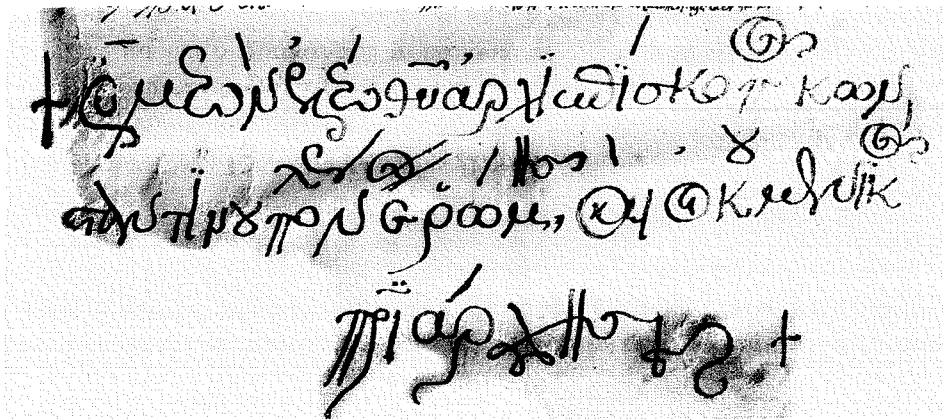 + Συμεὼν ἐλέω θυ ἀρχϊεπίσκοπος κων
σταντινουπόλεως νέας ῥώμης, καὶ οἰκουμενϊκὸς
πρϊάρχης +